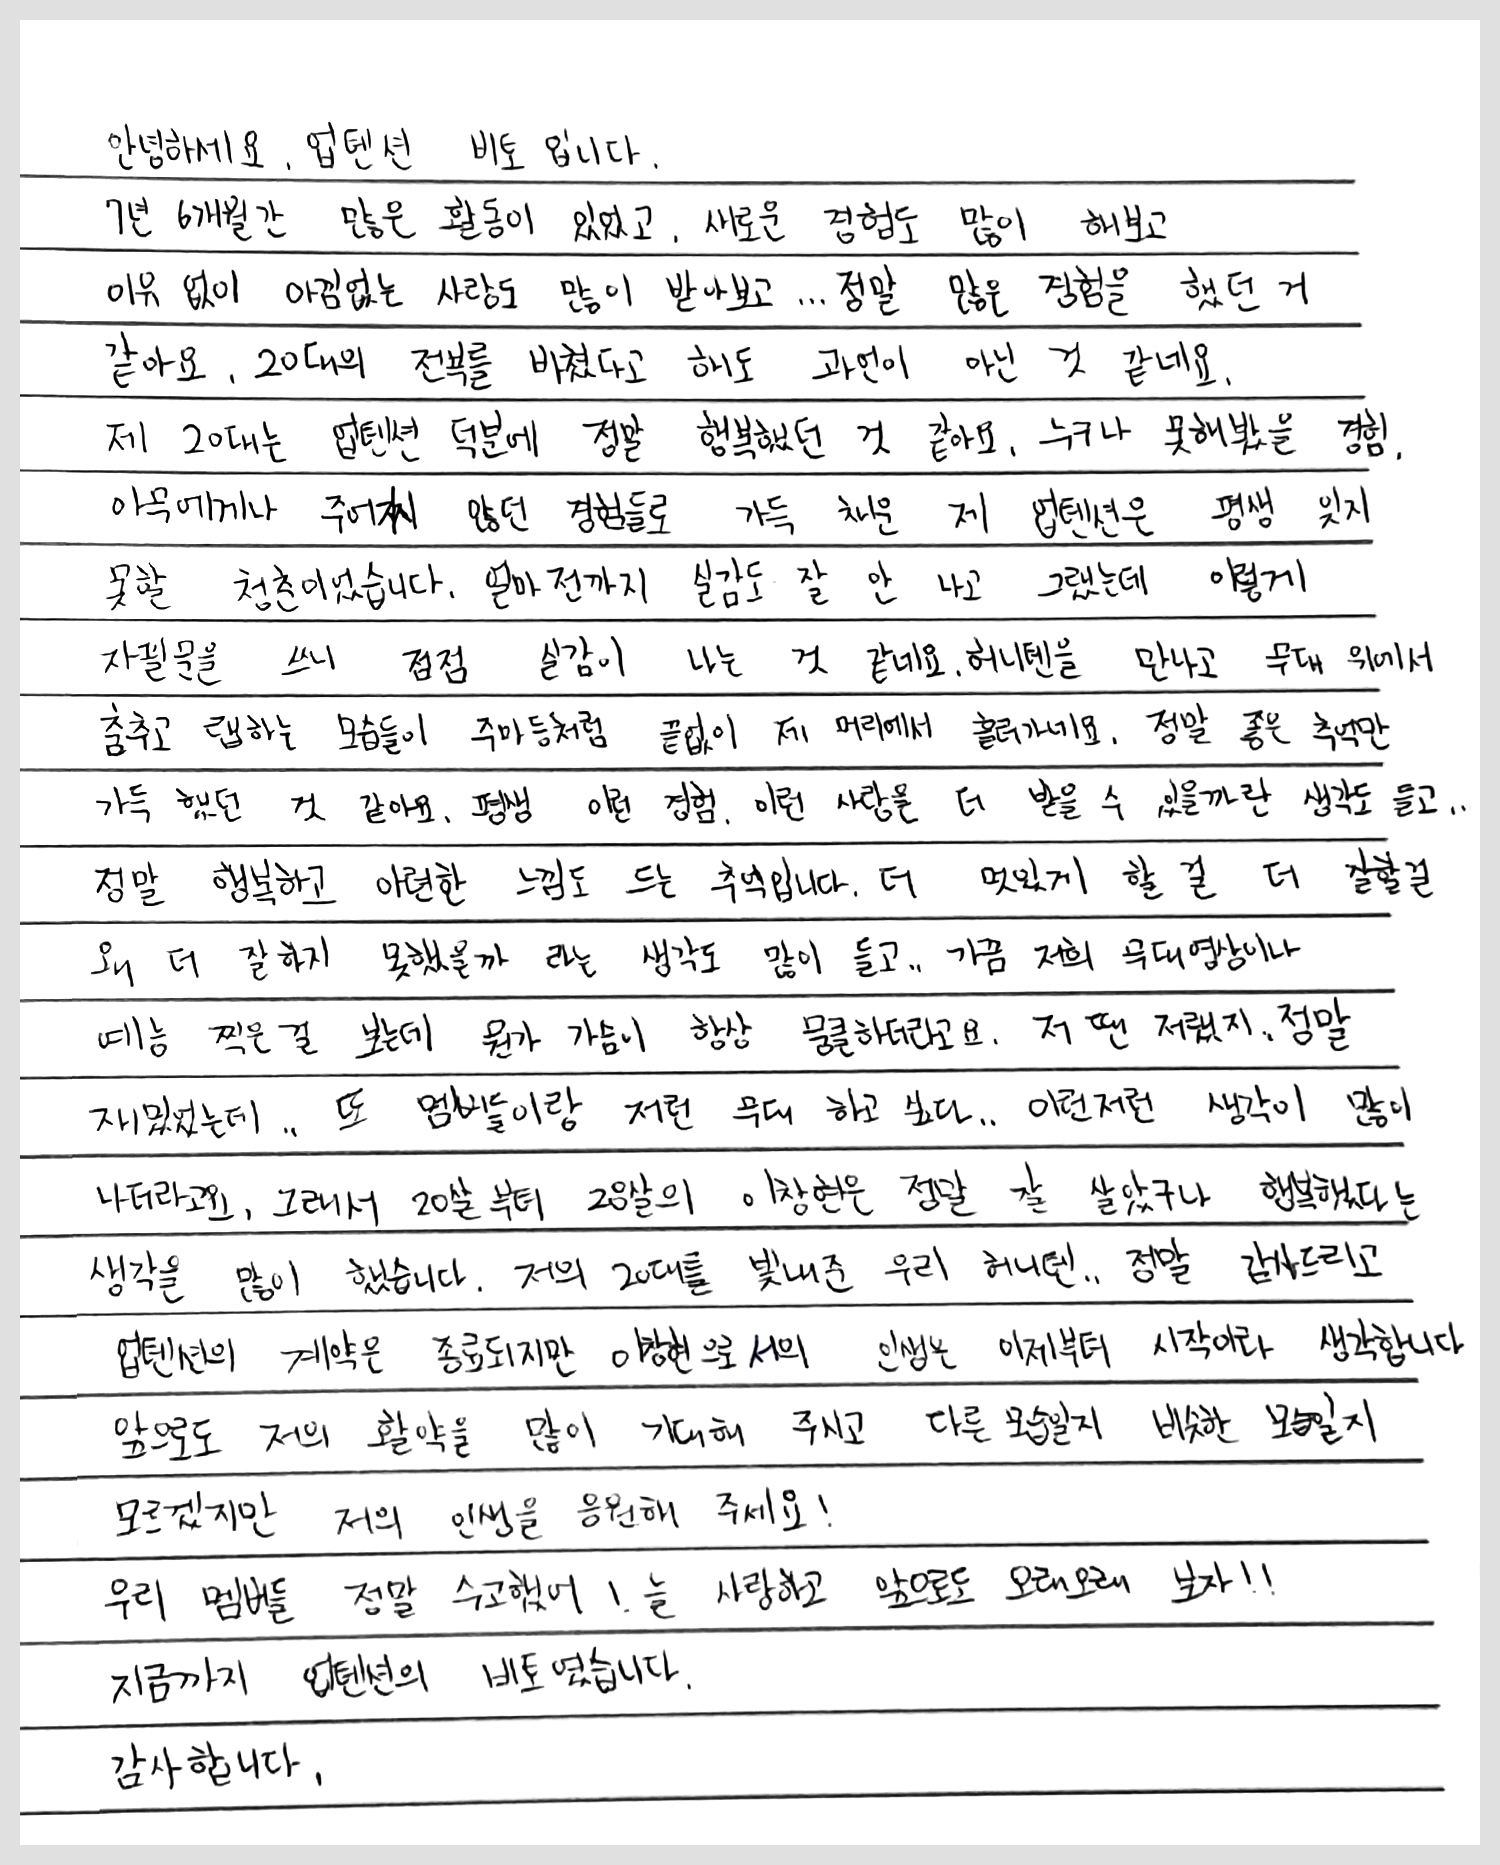 안녕하세요. 업텐션 비토 입니다.
7년 6개월간 많은 활동이 있었고, 새로운 경험도 많이 해보고
이유 없이 아낌없는 사랑도 많이 받아보고...정말 많은 경험을 했던 거
같아요. 20대의 전부를 바쳤다고 해도 과언이 아닌 것 같네요.
제 20대는 업텐션 덕분에 정말 행복했던 것 같아요. 누구나 못해봤을 경험,
아무에게나 주어지지 않던 경험들로 가득 채운 제 업텐션은 평생 잊지
못할 청춘이었습니다. 얼마 전까지 실감도 잘 안 나고 그랬는데 이렇게
자필문을 쓰니 점점 실감이 나는 것 같네요. 허니텐을 만나고 무대 위에서
춤추고 랩하는 모습들이 주마등처럼 끝없이 제 머리에서 흘러가네요. 정말 좋은 추억만
가득 했던 것 같아요. 평생 이런 경험, 이런 사랑을 더 받을 수 있을까란 생각도 들고..
정말 행복하고 아련한 느낌도 드는 추억입니다. 더 멋있게 할 걸 더 잘할걸
왜 더 잘하지 못했을까 라는 생각도 많이 들고.. 가끔 저희 무대영상이나
예능 찍은걸 보는데 뭔가 가슴이 항상 뭉클하더라고요. 저 땐 저랬지. 정말
재밌었는데.. 또 멤버들이랑 저런 무대 하고 싶다.. 이런저런 생각이 많이
나더라고요. 그래서 20살 부터 28살의 이창현은 정말 잘 살았구나 행복했다는
생각을 많이 했습니다. 저의 20대를 빛내준 우리 허니텐.. 정말 감사드리고
업텐션의 계약은 종료되지만 이창현으로서의 인생은 이제부터 시작이라 생각합니다
앞으로도 저의 활약을 많이 기대해 주시고 다른 모습일지 비슷한 모습일지
모르겠지만 저의 인생을 응원해 주세요!
우리 멤버들 정말 수고했어! 늘 사랑하고 앞으로도 오래오래 보자!!
지금까지 업텐션의 비토 였습니다.
감사합니다.